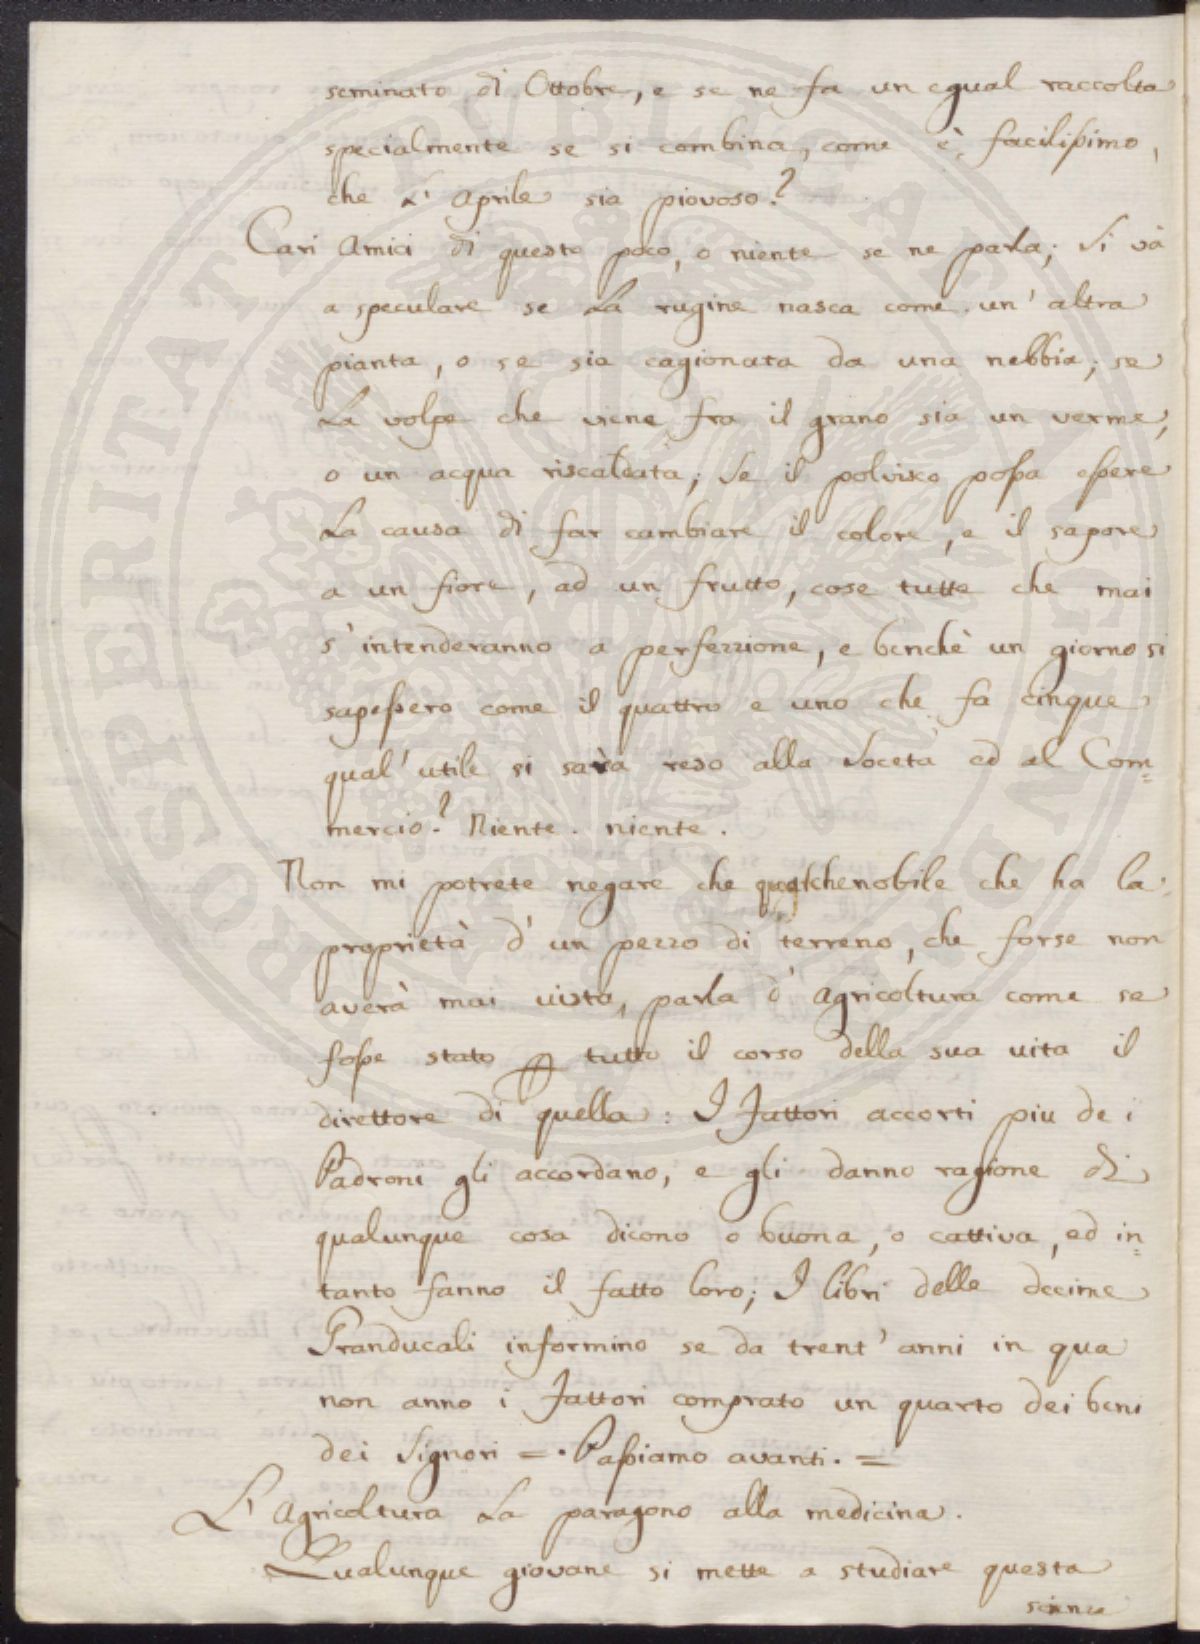 seminato di Ottobre, e se ne fa un egual raccolta
specialmente se si combina, come è facilissimo,
che L' Aprile sia piovoso?
Cari Amici di questo poco, o niente se ne parla; Si và
a speculare se La rugine nasca come un' altra
pianta, o se sia cagionata da una nebbia; se
La volpe che viene fra il grano sia un verme,
o un acqua riscaldata; Se il polvisco possa essere
La causa di far cambiare il colore, e il sapore
a un fiore, ad un frutto, cose tutte che mai
s' intenderanno a perfezzione, e benchè un giorno si
sapessero come il quattro e uno che fa cinque
qual' utile si sarà reso alla Soceta ed al Com=
mercio? Niente. niente.
Non mi potrete negare che qualchenobile che ha la
proprietà d' un pezzo di terreno, che forse non
averà mai vista, parla d' Agricoltura come se
fosse stato tutto il corso della sua vita il
direttore di quella: I Fattori accorti piu de i
Padroni gli accordano, e gli danno ragione di
qualunque cosa dicono o buona, o cattiva, ed in=
tanto fanno il fatto loro; I libri delle decime
Granducali informino se da trent' anni in qua
non anno i Fattori comprato un quarto dei beni
dei Signori =. Passiamo avanti. =
L' Agricoltura La paragono alla medicina.
Qualunque giovane si mette a studiare questa
scienza
PROSPERITATI PUBLICAE AUGENDAE